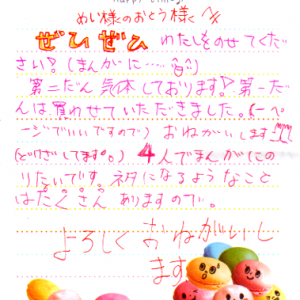 めい様のおとう様へ
ぜひぜひ わたしをのせてくだ
さい?(まんがに…
第二だん気体しております?第一だ
んは買わせていただきました。(一ペ
ージでいいですので)おねがいします
(どげざしてます。)4人でまんがにの
りたいです。ネタになるようなこと
はたくさんありますので。
よろしくおねがいし
ます